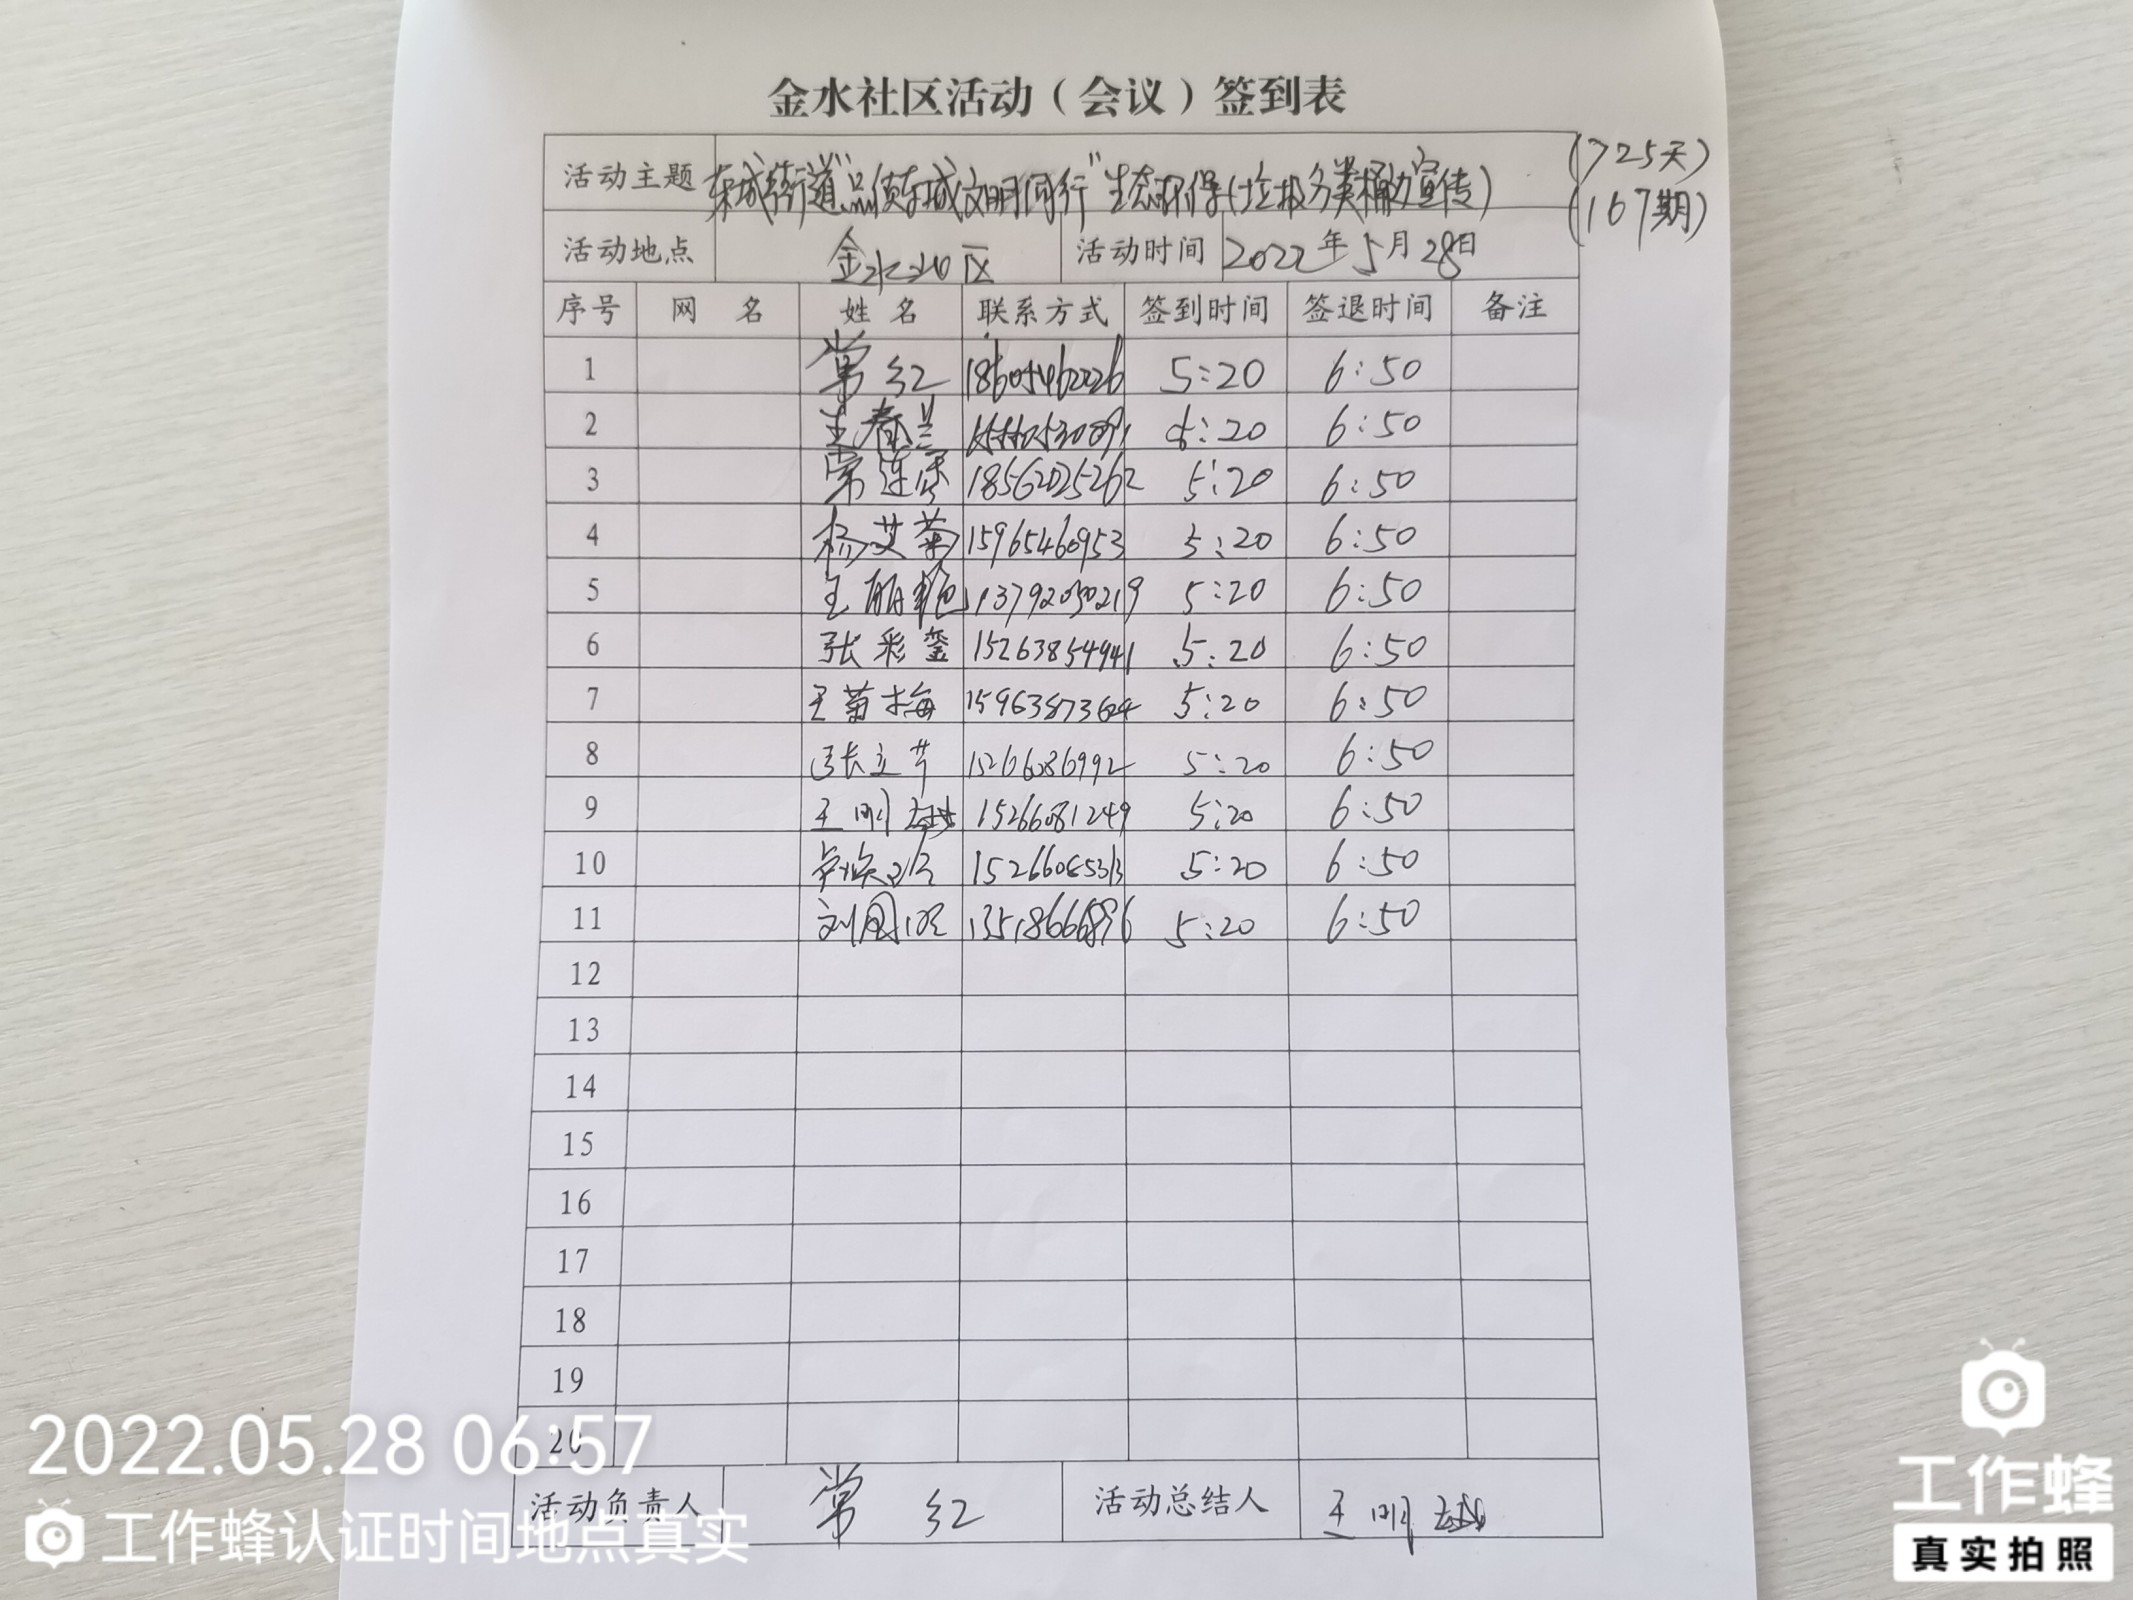 金水社区活动（会议）签到表
活动主题 东城街道"品质东城文明同行"生态环保(垃圾分类桶边宣传) (725天)
(167期)
活动地点 金水社区 活动时间 2022年5月28日
序号 网 名 姓 名 联系方式 签到时间 签退时间 备注
1 常红 18605462226 5:20 6:50
2 王春兰 5:20 6:50
3 常连秀 18562025262 5:20 6:50
4 杨艾菊 15965460953 5:20 6:50
5 王丽艳 13792050219 5:20 6:50
6 张彩銮 15263854941 5:20 6:50
7 王菊梅 15963873624 5:20 6:50
8 张立芹 15266086992 5:20 6:50
9 王明越 15266081249 5:20 6:50
10 15266065313 5:20 6:50
11 13518666896 5:20 6:50
12
13
14
15
16
17
18
19
20
活动负责人 常红 活动总结人 王明越
2022.05.28 06:57
工作蜂认证时间地点真实
工作蜂
真实拍照